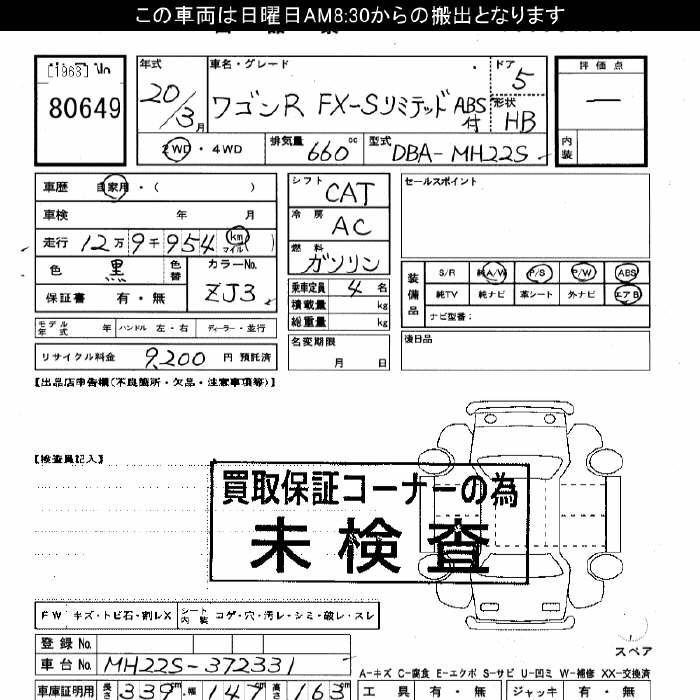 この車両は日曜日AM8:30からの搬出となります
[1963]
80649
年式
20/3月
車名・グレード
ワゴンR FX-Sリミテッド ABS付
ドア 5
形状 HB
評価点
—
内装
2WD・4WD
排気量 660 cc
型式 DBA-MH22S
車歴 自家用・( )
車検 年 月
走行 12万9千954 km マイル ( )
色 黒 色替
カラーNo. ZJ3
保証書 有・無
モデル年式 年 ハンドル 左・右 ディーラー・並行
リサイクル料金 9,200 円 預託済
シフト CAT
冷房 AC
燃料 ガソリン
乗車定員 4 名
積載量 kg
総重量 kg
名変期限 月 日
セールスポイント
装備品
S/R 純A/W P/S P/W ABS
純TV 純ナビ 革シート 外ナビ エアB
ナビ型番:
後日品
【出品店申告欄(不良箇所・欠品・注意事項等)】
【検査員記入】
買取保証コーナーの為
未検査
FW キズ・トビ石・割レX シート内装 コゲ・穴・汚レ・シミ・破レ・スレ
スペア
登録No.
車台No. MH22S-372331
A-キズ C-腐食 E-エクボ S-サビ U-凹ミ W-補修 XX-交換済
車庫証明用 長さ 339cm 幅 147cm 高さ 163cm
工具 有・無 ジャッキ 有・無